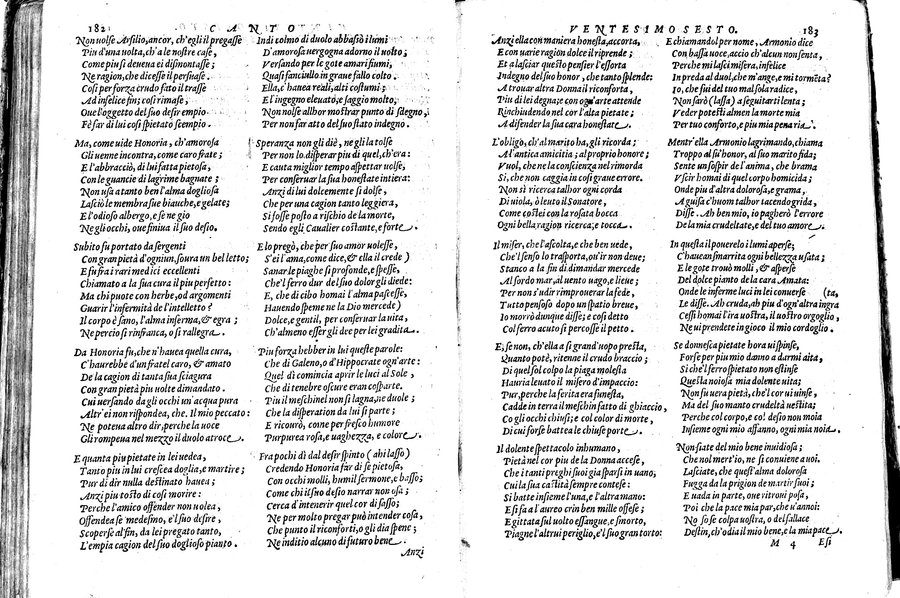 182 CANTO
Non volse Arsilio, ancor, ch'egli il pregasse
Piu d'una uolta, ch'a le nostre case,
Come piu si deueua ei dismontasse;
Ne ragion, che dicesse il persuase.
Cosi per forza crudo fato il trasse
Ad infelice fin; cosi rimase,
Oue l'oggetto del suo desir empio
Fè far di lui cosi spietato scempio.
Ma, come uide Honoria, ch'amorosa
Gli uenne incontra, come caro frate;
E l'abbracciò, di lui fatta pietosa,
Con le guancie di lagrime bagnate;
Non usa tanto ben l'alma dogliosa
Lasciò le membra sue bianche, e gelate;
E l'odioso albergo, e se ne gio
Ne gli occhi, oue finiua il suo desio.
Subito fu portato da sergenti
Con gran pietà d'ogniun, soura un bel letto;
E su fra i rari medici eccellenti
Chiamato a la sua cura il piu perfetto:
Ma chi puote con herbe, od argomenti
Guarir l'infermità de l'intelletto?
Il corpo è sano, l'alma inferma, & egra;
Ne percio si rinfranca, o si rallegra.
Da Honoria fu, che n'hauea quella cura,
C'haurebbe d'un fratel caro, & amato
De la cagion di tanta sua sciagura
Con gran pietà piu uolte dimandato.
Cui uersando da gli occhi un'acqua pura
Altr'ei non rispondea, che. Il mio peccato:
Ne poteua altro dir, perche la uoce
Gli rompeua nel mezzo il duolo atroce.
E quanta piu pietate in lei uedea,
Tanto piu in lui crescea doglia, e martire;
Pur di dir nulla destinato hauea;
Anzi piu tosto di cosi morire:
Perche l'amico offender non uolea,
Offendea se medesmo, e'l suo desire,
Scoperse al fin, da lei pregato tanto,
L'empia cagion del suo doglioso pianto.
Indi colmo di duolo abbassò i lumi
D'amorosa uergogna adorno il uolto;
Versando per le gote amari fiumi,
Quasi fanciullo in graue fallo colto.
Ella, c'hauea reali, alti costumi;
E l'ingegno eleuato, e saggio molto,
Non uolse allhor mostrar punto di sdegno,
Per non far atto del suo stato indegno.
Speranza non gli diè, ne gli la tolse
Per non lo disperar piu di quel, ch'era:
E cauta miglior tempo aspettar uolse,
Per conseruar la sua honestate intiera:
Anzi di lui dolcemente si dolse,
Che per una cagion tanto leggiera,
Si fosse posto a rischio de la morte,
Sendo egli Caualier costante, e forte.
E lo pregò, che per suo amor uolesse,
S'ei l'ama, come dice, & ella il crede)
Sanar le piaghe si profonde, e spesse,
Che'l ferro dur del suo dolor gli diede:
E, che di cibo homai l'alma pascesse,
Hauendo speme ne la Dio mercede)
Dolce, e gentil, per conseruar la uita,
Ch'almeno esser gli dee per lei gradita.
Piu forza hebber in lui queste parole:
Che di Galeno, o d'Hippocrate ogn'arte:
Quel dì comincia aprir le luci al Sole,
Che di tenebre oscure eran cosparte.
Piu il meschinel non si lagna, ne duole;
Che la disperation da lui si parte;
E ricourò, come per fresco humore
Purpurea rosa, e uaghezza, e colore.
Fra pochi dì dal desir spinto (ahi lasso)
Credendo Honoria far di se pietosa,
Con occhi molli, humil sermone, e basso;
Come chi il suo desio narrar non osa;
Cerca d'intenerir quel cor di sasso;
Ne per molto pregar può intender cosa,
Che punto il riconforti, o gli dia spene;
Ne inditio alcuno di futuro bene.
Anzi
VENTESIMOSESTO. 183
Anzi ella con maniera honesta, accorta,
E con uarie ragion dolce il riprende;
Et a lasciar questo pensier l'essorta
Indegno del suo honor, che tanto splende:
A trouar altra Donna il riconforta,
Piu di lei degna; e con ogn'arte attende
Rinchiudendo nel cor l'alta pietate;
A difender la sua cara honestate.
L'obligo, ch'al marito ha, gli ricorda;
A l'antica amicitia; al proprio honore;
Vuol, che ne la conscienza nel rimorda
Sì, che non caggia in cosi graue errore.
Non sì ricerca talhor ogni corda
Di uiola, ò leuto il Sonatore,
Come costei con la rosata bocca
Ogni bella ragion ricerca, e tocca.
Il miser, che l'ascolta, e che ben uede,
Che'l senso lo trasporta, ou'ir non deue;
Stanco a la fin di dimandar mercede
Al sordo mar, al uento uago, e lieue;
Per non s'udir rimprouerar la fede,
Tutto pensoso dopo un spatio breue,
Io morrò dunque disse; e cosi detto
Col ferro acuto si percosse il petto.
E, se non, ch'ella a si grand'uopo presta,
Quanto potè, ritenne il crudo braccio;
Di quel sol colpo la piaga molesta
Hauria leuato il misero d'impaccio:
Pur, perche la ferita era funesta,
Cadde in terra il meschin fatto di ghiaccio,
Co gli occhi chiusi; e col color di morte,
Di cui forse battea le chiuse porte.
Il dolente spettacolo inhumano,
Pietà nel cor piu de la Donna accese,
Che i tanti preghi suoi gia sparsi in uano,
Cui la sua castità sempre contese:
Si batte insieme l'una, e l'altra mano:
E si fa a l'aureo crin ben mille offese;
E gittata sul uolto essangue, e smorto,
Piagne l'altrui periglio, e'l suo gran torto:
E chiamandol per nome, Armonio dice
Con bassa uoce, accio ch'alcun non senta,
Perche mi lasci misera, infelice
In preda al duol, che m'ange, e mi tormẽta?
Io, che fui del tuo mal sola radice,
Non sarò (lassa) a seguitarti lenta;
Veder potesti almen la morte mia
Per tuo conforto, e piu mia pena ria.
Mentr'ella Armonio lagrimando, chiama
Troppo al su' honor, al suo marito fida;
Sente un sospir de l'anima, che brama
Vscir homai di quel corpo homicida;
Onde piu d'altra dolorosa, e grama,
A guisa c'huom talhor tacendo grida,
Disse. Ah ben mio, io pagherò l'errore
De la mia crudeltate, e del tuo amore.
In questa il pouerelo i lumi aperse;
C'hauean smarrita ogni bellezza usata;
E le gote trouò molli, & asperse
Del dolce pianto de la cara Amata:
Onde le inferme luci in lei conuerse (ta,
Le disse. Ah cruda, ah piu d'ogn'altra ingra
Cessi homai l'ira uostra, il uostro orgoglio,
Ne ui prendete in gioco il mio cordoglio.
Se donnesca pietate hora ui spinse,
Forse per piu mio danno a darmi aita,
Si che'l ferro spietato non estinse
Questa noiosa mia dolente uita;
Non fu uera pietà, che'l cor ui uinse,
Ma del suo manto crudeltà uestita;
Perche col corpo, e co' desir non moia
Insieme ogni mio affanno, ogni mia noia.
Non siate del mio bene inuidiosa;
Che nol mert'io, ne si conuiene a uoi.
Lasciate, che quest'alma dolorosa
Fugga da la prigion de martir suoi;
E uada in parte, oue ritroui posa,
Poi che la pace mia par, che u'annoi:
No so se colpa uostra, o del fallace
Destin, ch'odia il mio bene, e la mia pace.
M 4 Esi